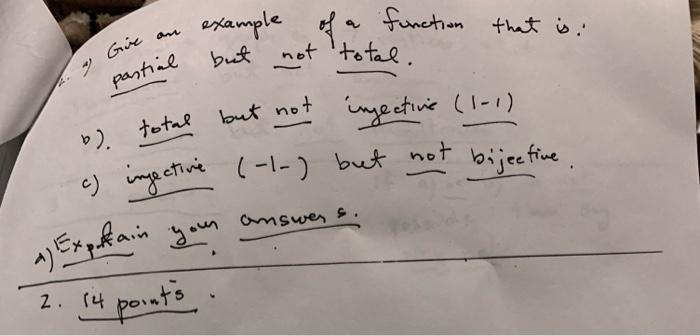 2. a) Give an example of a function that is:
partial but not total.
b). total but not injective (1-1)
c) injective (-1-) but not bijective.
A) Explain your answers.
2. 14 points.